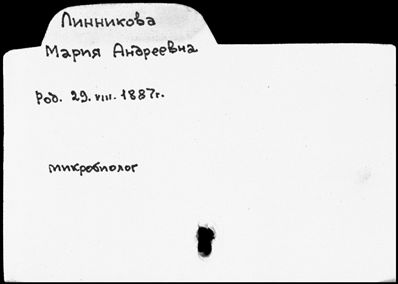 Линникова
Мария Андреевна
Род. 29. VIII. 1887г.
микробиолог